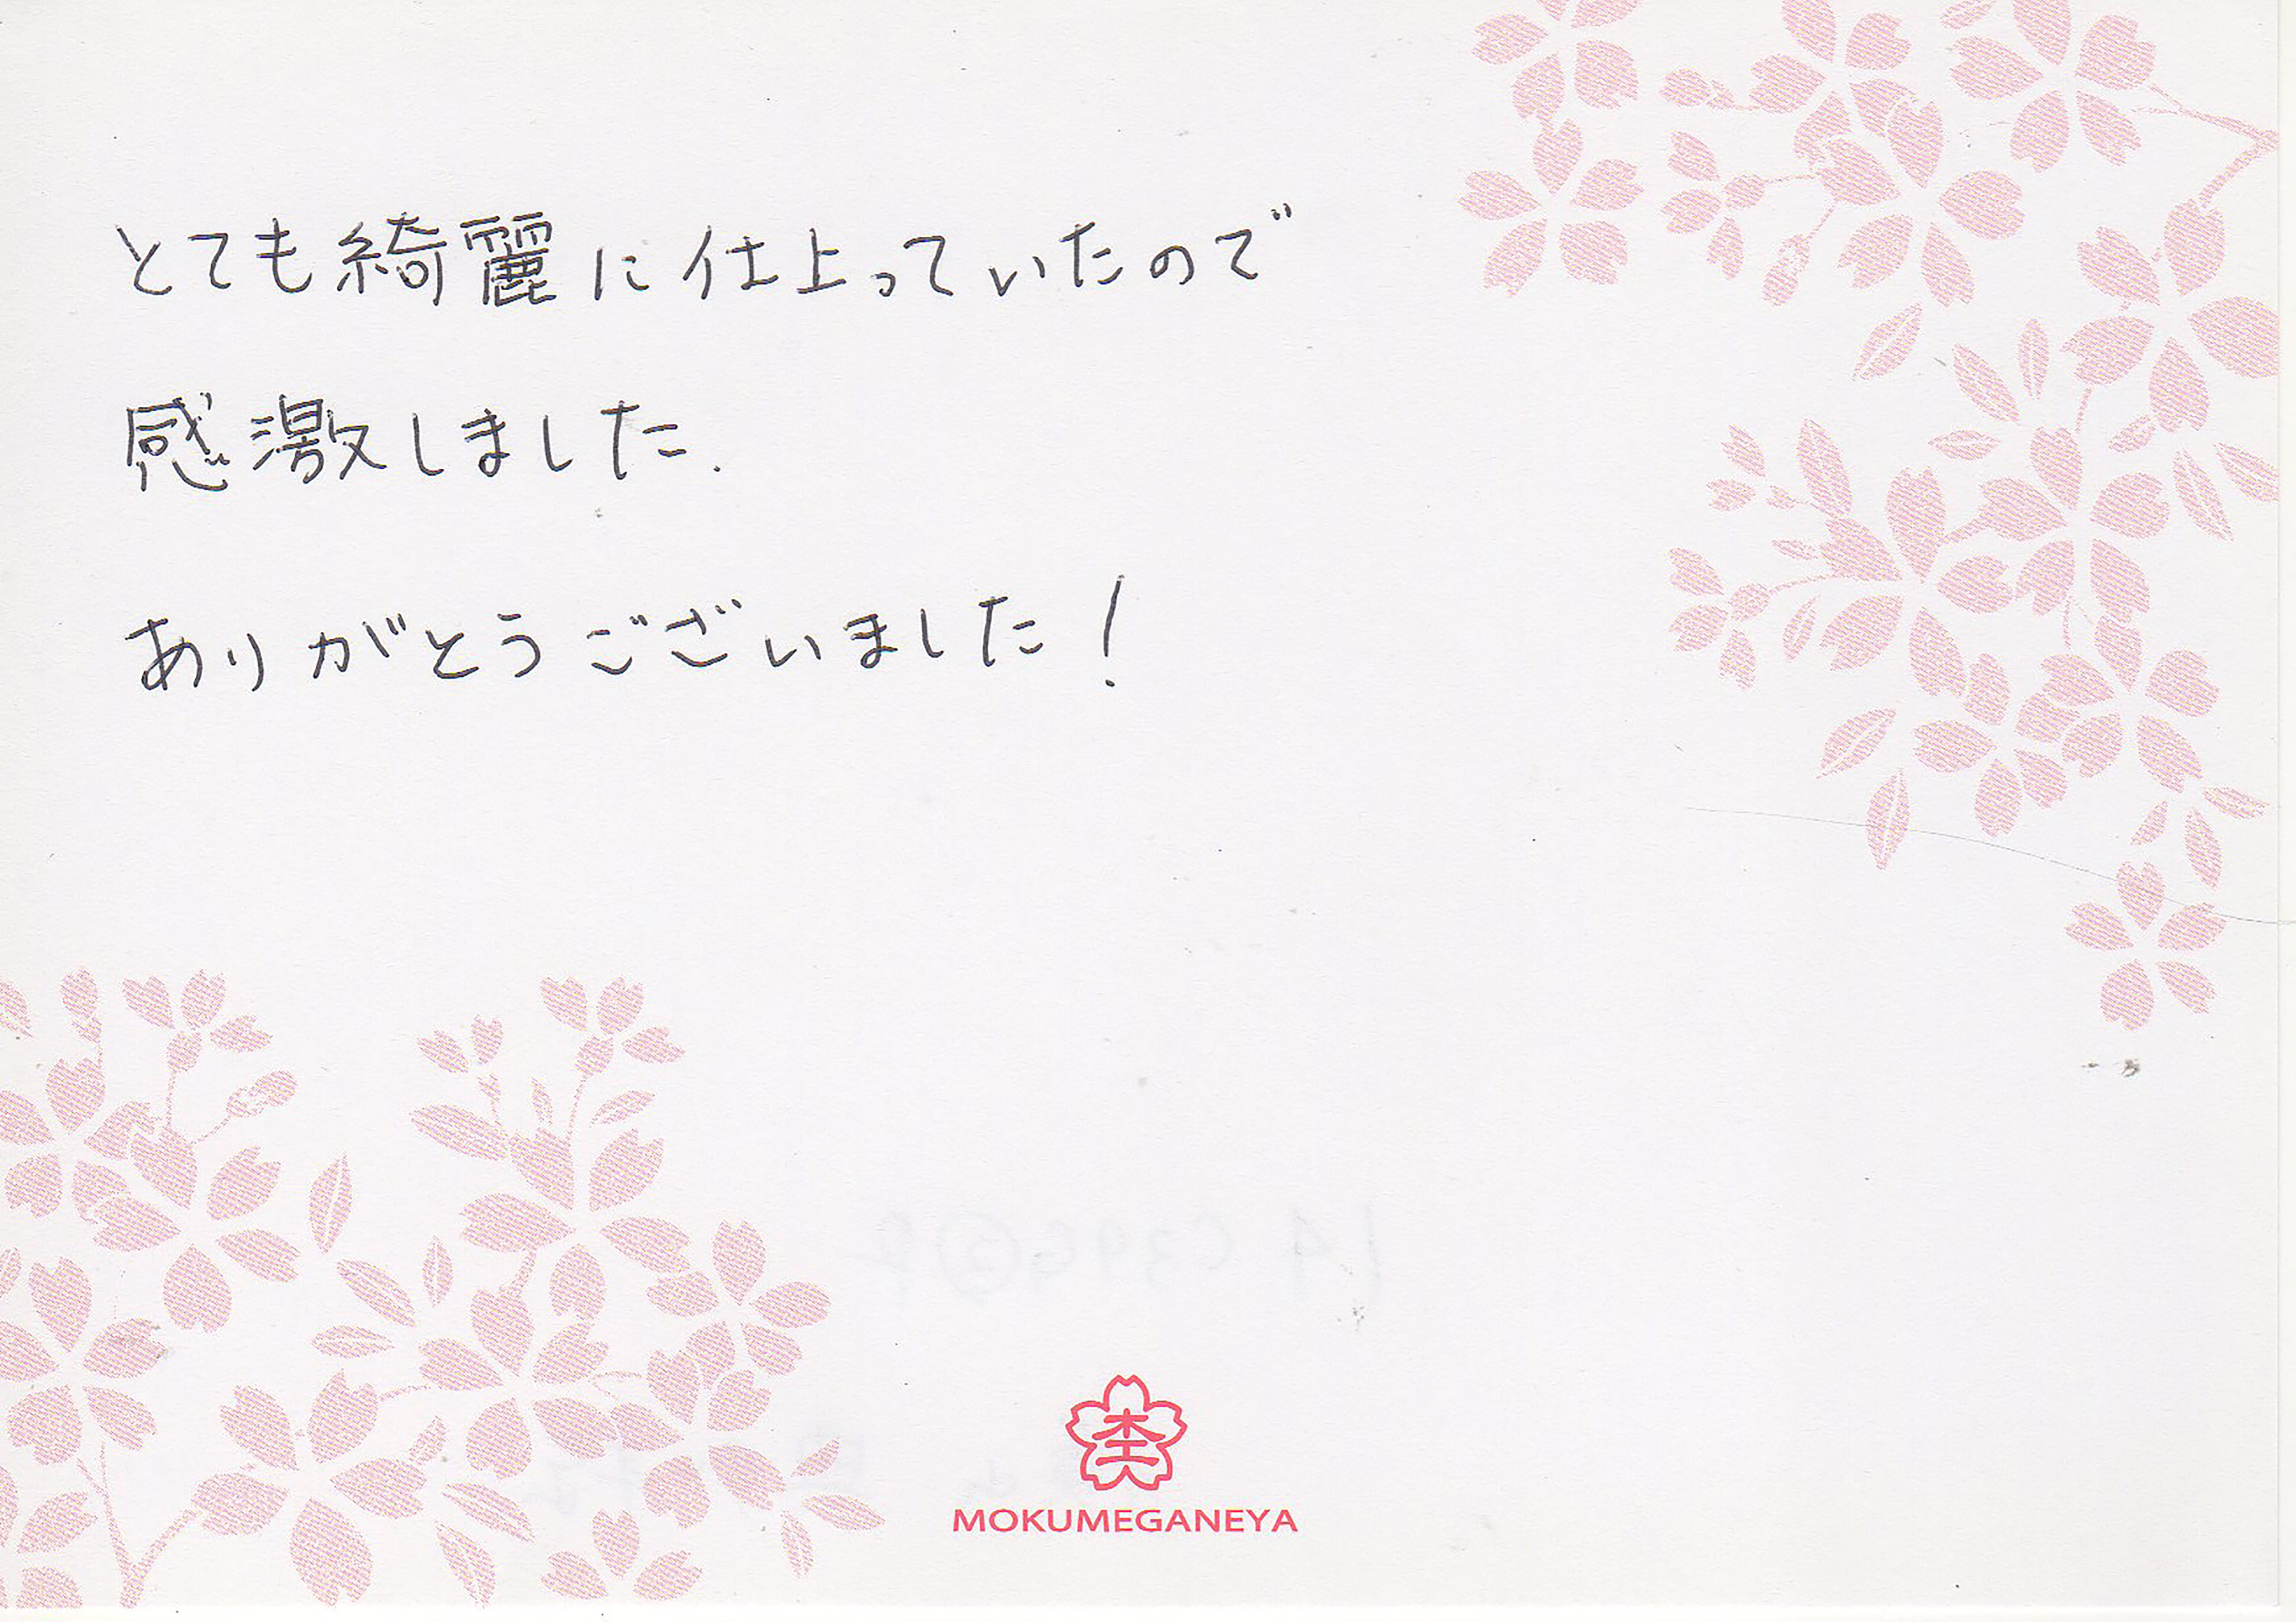 とても綺麗に仕上っていたので
感激しました.
ありがとうございました!
MOKUMEGANEYA